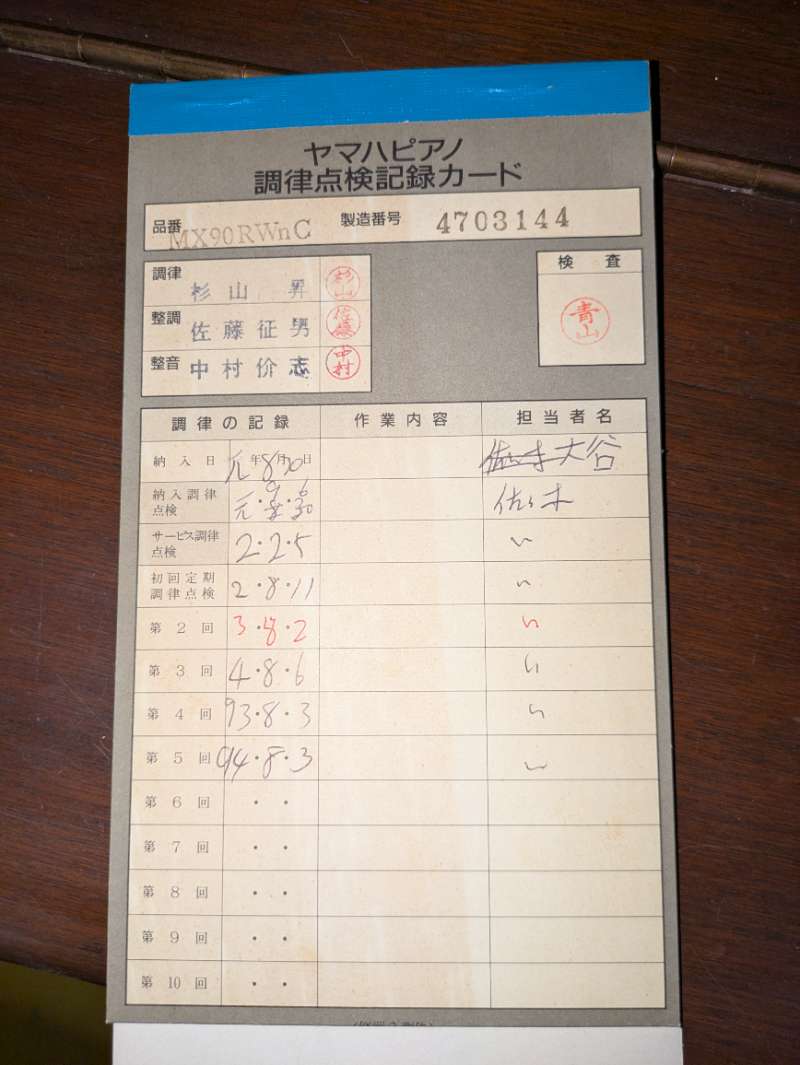 ヤマハピアノ
調律点検記録カード
品番 MX90RWnC 製造番号 4703144
調律 杉山 昇 杉山
検査
整調 佐藤征男 佐藤
青山
整音 中村价志 中村
調律の記録 作業内容 担当者名
納入日 元年8月30日 大谷
納入調律点検 元・9・6 佐々木
サービス調律点検 2・2・5 〃
初回定期調律点検 2・8・11 〃
第2回 3・8・2 〃
第3回 4・8・6 〃
第4回 93・8・3 〃
第5回 94・8・3 〃
第6回 ・ ・
第7回 ・ ・
第8回 ・ ・
第9回 ・ ・
第10回 ・ ・